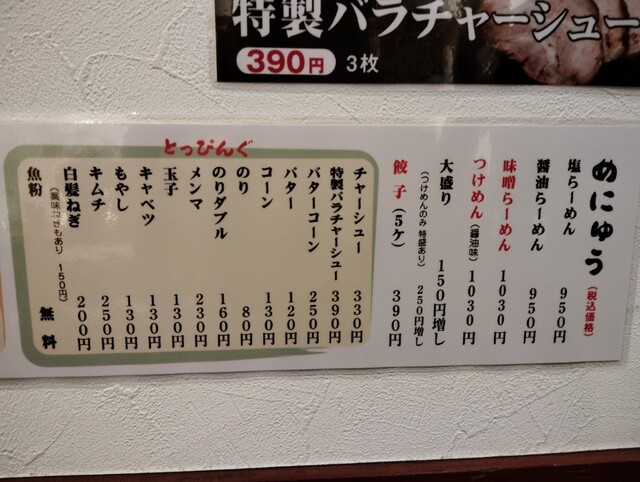 特製バラチャーシュー
390円 3枚
めにゅう(税込価格)
塩らーめん 950円
醤油らーめん 950円
味噌らーめん 1030円
つけめん(醤油味) 1030円
大盛り 150円増し
(つけめんのみ 特盛あり) 250円増し
餃子(5ケ) 390円
とっぴんぐ
チャーシュー 330円
特製バラチャーシュー 390円
バターコーン 250円
バター 120円
コーン 130円
のり 80円
のりダブル 160円
メンマ 230円
玉子 130円
キャベツ 130円
もやし 130円
キムチ 250円
白髪ねぎ 200円
(薬味ねぎもあり 150円)
魚粉 無料